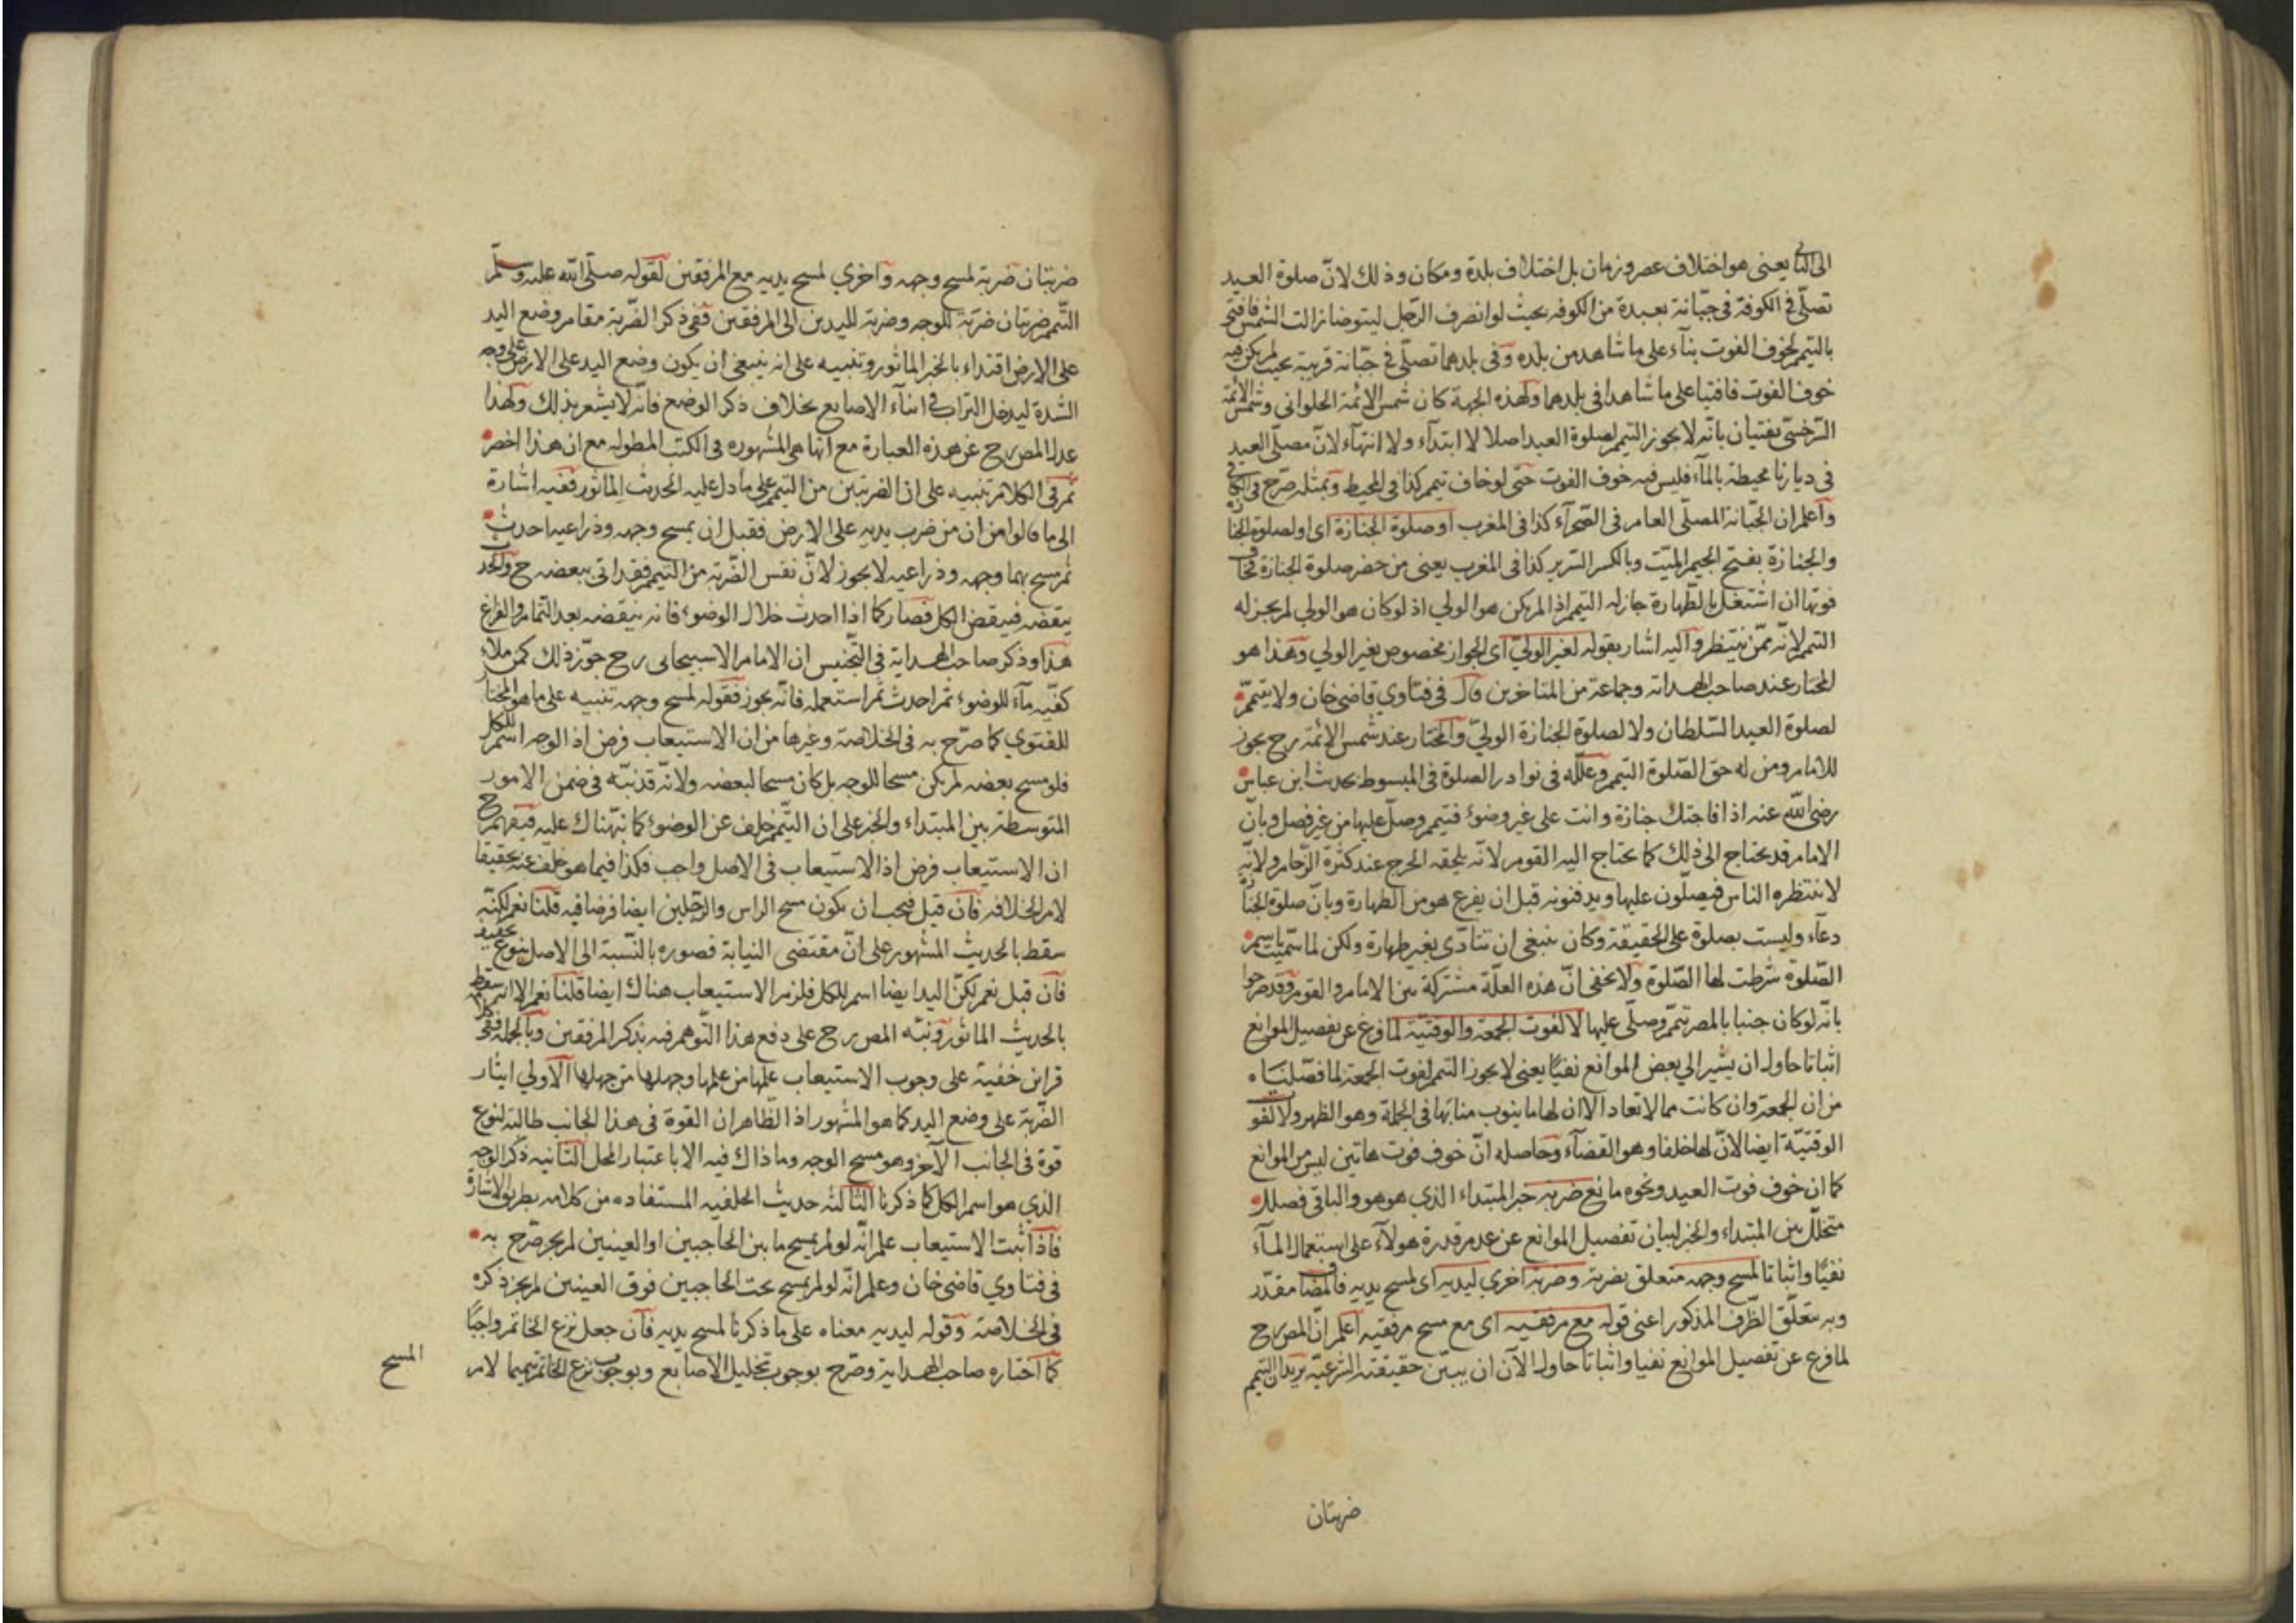 الى الثاني يعنى هو اختلاف عصر وزمان بل اختلاف بلدة ومكان وذلك لانّ صلوة العيد
تصلّى فى الكوفة فى جبّانة بعيدة من الكوفه بحيث لو انصرف الرّجل ليتوضا زالت الشمس فافتى
بالتيمم لخوف الفوت بنآء على ما شاهد من بلده وفى بلدهما تصلّى فى جبّانة قريبة بحيث لم يكن فيه
خوف الفوت فافتيا على ما شاهدا فى بلدهما ولهذه الجهة كان شمس الائمة الحلوانى وشمس الائمة
السّرخسّى يفتيان بانّه لا يجوز التيمم لصلوة العيد اصلا لا ابتدآء ولا انتهآء لانّ مصلّى العيد
فى ديارنا محيطة بالمآء فليس فيه خوف الفوت حتّى لو خاف تيمم كذا فى المحيط وبمثله صرّح فى الكافى
واعلم ان الجبّانة المصلّى العام فى الصّحرآء كذا فى المغرب او صلوة الجنازة اى او لصلوة الجنازة
والجنازة بفتح الجيم الميّت وبالكسر السّرير كذا فى المغرب يعنى من حضر صلوة الجنازة فخاف
فوتها ان اشتغل بالطّهارة جاز له التيمم اذا لم يكن هو الولي اذ لو كان هو الولي لم يجز له
التيمم لانّه ممّن ينتظر واليه اشار بقوله لغير الوليّ اى الجواز مخصوص بغير الولي وهذا هو
المختار عند صاحب الهداية وجماعة من المتاخرين قال فى فتاوي قاضى خان ولا يتيمّم
لصلوة العيد السّلطان ولا لصلوة الجنازة الوليّ والمختار عند شمس الائمة رح يجوز
للامام ومن له حق الصّلوة التيمم وعلّله فى نوادر الصلوة فى المبسوط بحديث ابن عباس
رضى الله عنه اذا فاجئتك جنازة وانت على غير وضوء فتيمم وصلّ عليها من غير فصل وبانّ
الامام قد يحتاج الى ذلك كما يحتاج اليه القوم لانّه يلحقه الحرج عند كثرة الزّحام ولانّه
لا ينتظره الناس فيصلّون عليها ويدفنونه قبل ان يفرغ هو من الطهارة وبانّ صلوة الجنازة
دعآء وليست بصلوة على الحقيقة وكان ينبغى ان تتادّى بغير طهارة ولكن لما سمّيت باسم
الصّلوة شرطت لها الصّلوة ولا يخفى انّ هذه العلّة مشتركة بين الامام والقوم وقد صرحوا
بانّه لو كان جنبا بالمصر تيمّم وصلّى عليها لا لفوت الجمعة والوقتيّة لما فرغ عن تفصيل الموانع
اثباتا حاول ان يشير الي بعض الموانع نفيًا يعنى لا يجوز التيمم لفوت الجمعة لما فصّلناه
من ان الجمعة وان كانت مما لا تعاد الا ان لها ما ينوب منابها فى الجملة وهو الظهر ولا لفوت
الوقتيّة ايضا لانّ لها خلفا وهو القضآء وحاصله انّ خوف فوت هاتين ليس من الموانع
كما ان خوف فوت العيد ونحوه مانع ضربة خبر المبتداء الذي هو هو والباقى فصل
متخلّل بين المبتداء والخبر لبيان تفصيل الموانع عن عدم قدرة هولآء على استعمال المآء
نفيًا واثباتا لمسح وجهه متعلق بضربة وضربة اخري ليديه اى لمسح يديه فالمضاف مقدّر
وبه يتعلّق الظّرف المذكور اعنى قوله مع مرفقيه اى مع مسح مرفقيه اعلم انّ المص رح
لما فرغ عن تفصيل الموانع نفيا واثباتا حاول الآن ان يبيّن حقيقته الشرعيّة يريد ان التيمم
ضربتان
ضربتان ضربة لمسح وجهه وآخري لمسح يديه مع المرفقين لقوله صلّى الله عليه وسلّم
التّيمم ضربتان ضربة للوجه وضربة لليدين الى المرفقين ففى ذكر الضّربة مقام وضع اليد
على الارض اقتداء بالخبر الماثور وتنبيه على انه ينبغى ان يكون وضع اليد على الارض على وجه
الشّدة ليدخل التراب فى اثنآء الاصابع بخلاف ذكر الوضع فانّه لا يشعر بذلك ولهذا
عدل المص رح عن هذه العبارة مع انها هى المشهوره فى الكتب المطوله مع ان هذا اخصر
ثم فى الكلام تنبيه على ان الضربتين من التيمم على ما دل عليه الحديث الماثور ففيه اشارة
الى ما قالوا من ان من ضرب يديه على الارض فقبل ان يمسح وجهه وذراعيه احدث
ثم مسح بهما وجهه وذراعيه لا يجوز لانّ نفس الضّربة من التيمم فقد اتى ببعضه ح والحدث
ينقضه فينقض الكل فصار كما اذا احدث خلال الوضوء فانه ينقضه بعد التمام والفراغ
هذا وذكر صاحب الهداية فى التّجنيس ان الامام الاسبيجابى رح جوّز ذلك كمن ملاء
كفّيه مآء للوضوء ثم احدث ثم استعمله فانّه يجوز فقوله لمسح وجهه تنبيه على ما هو المختار
للفتوي كما صرّح به فى الخلاصة وغيرها من ان الاستيعاب فرض اذ الوجه اسم للكل
فلو مسح بعضه لم يكن مسحا للوجه بل كان مسحا لبعضه ولانّه قد نبّه فى ضمن الامور
المتوسطة بين المبتداء والخبر على ان التيّمم خلف عن الوضوء كما نبّهناك عليه فيفهم ح
ان الاستيعاب فرض اذ الاستيعاب فى الاصل واجب فكذا فيما هو خلف عنه تحقيقا
لامر الخلافه فان قيل فيجب ان يكون مسح الراس والرّجلين ايضا فرضا فيه قلنا نعم لكنّه
سقط بالحديث المشهور على انّ مقتضى النيابة قصوره بالنّسبة الى الاصل بنوع تخفيف
فان قيل نعم لكنّ اليد ايضا اسم للكل فلزم الاستيعاب هناك ايضا قلنا نعم الا انه سقط
بالحديث الماثور ونبّه المص رح على دفع هذا التّوهم فيه بذكر المرفقين وبالجملة ففى كلامه
قراين خفية على وجوب الاستيعاب علمها من علمها وجهلها من جهلها الاولي ايثار
الضّربة على وضع اليد كما هو المشهور اذ الظّاهر ان القوة فى هذا الجانب طالبة لنوع
قوة فى الجانب الآخر وهو مسح الوجه وما ذاك فيه الا باعتبار المحل الثّانيه ذكر الوجه
الذي هو اسم الكل كما ذكرنا الثالثه حديث الخلفيه المستفاده من كلامه بطريق الاشارة
فاذا ثبت الاستيعاب علم انّه لو لم يمسح ما بين الحاجبين او العينين لم يجز صرّح به
فى فتاوي قاضى خان وعلم انّه لو لم يمسح تحت الحاجبين فوق العينين لم يجز ذكره
فى الخلاصة وقوله ليديه معناه على ما ذكرنا لمسح يديه فان جعل نزع الخاتم واجبًا
كما اختاره صاحب الهداية وصرّح بوجوب تخليل الاصابع وبوجوب نزع الخاتم تتميما لامر
المسح